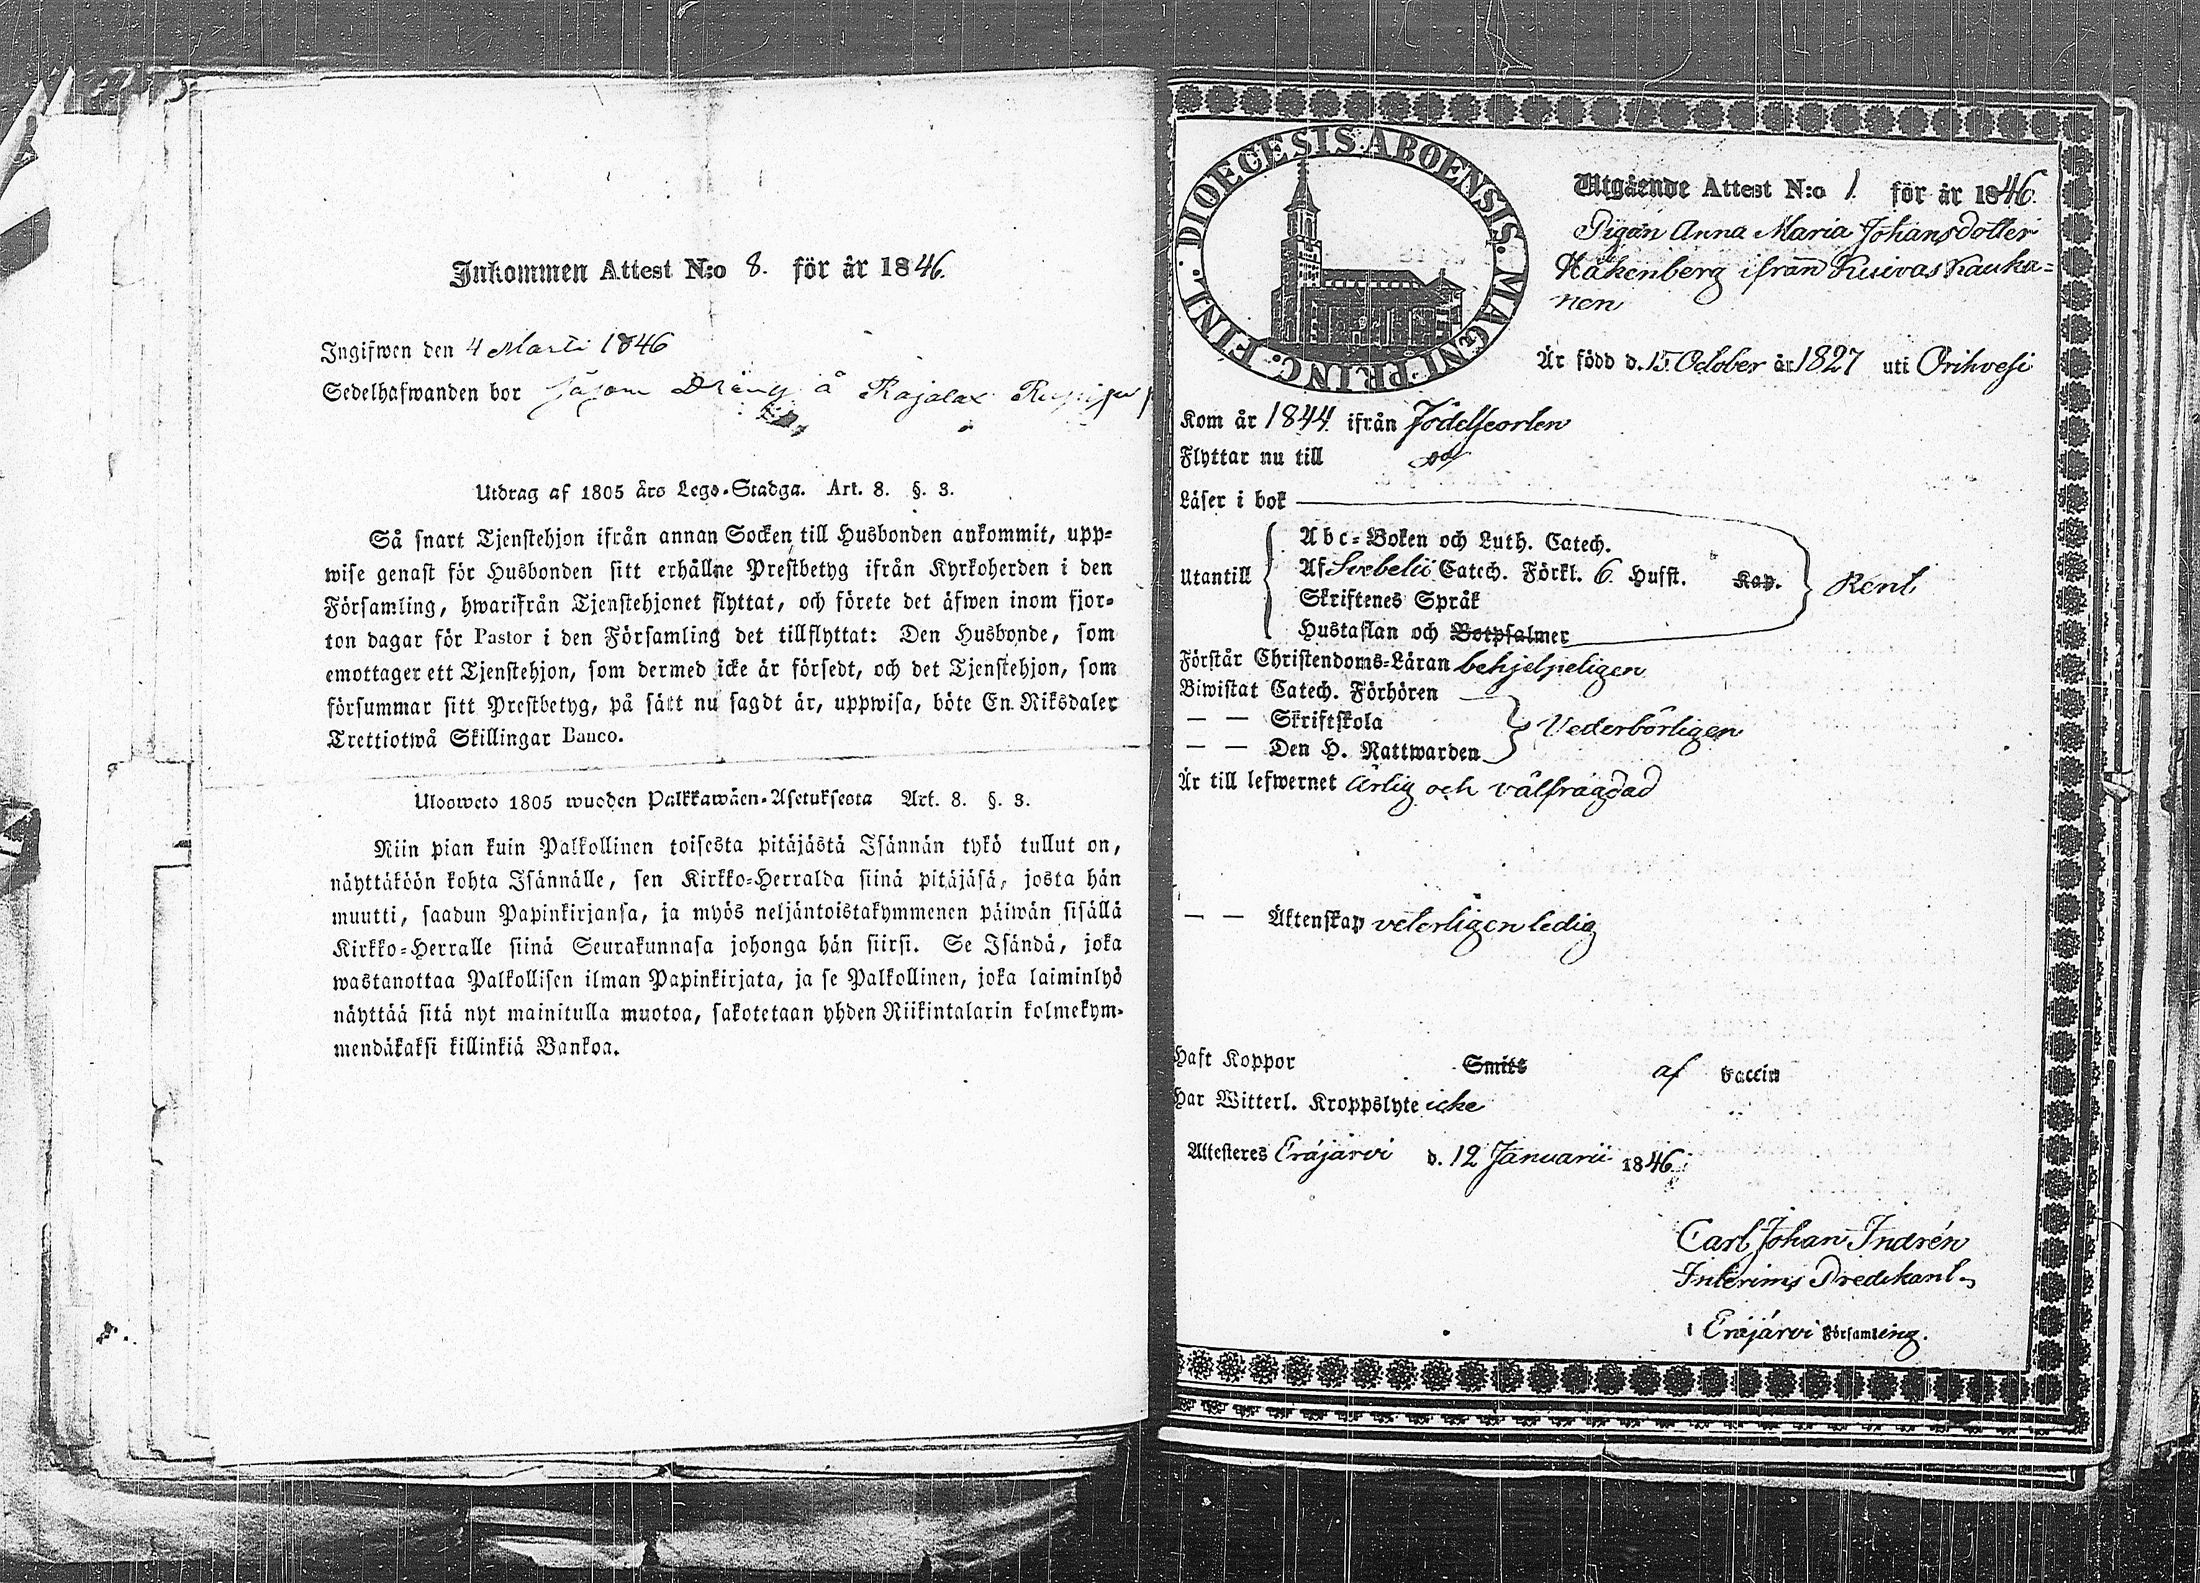 Inkommen Attest N:o 8. för år 1846.
Ingifwen den 4 Martii 1846
Sedelhafwanden bor såsom Dräng å Rajalax
Utdrag af 1805 års Lego-Stadga. Art. 8. §. 3.
Så snart Tjenstehjon ifrån annan Socken till Husbonden ankommit, upp-
wise genast för Husbonden sitt erhållne Prestbetyg ifrån Kyrkoherden i den
Församling, hwarifrån Tjenstehjonet flyttat, och förete det äfwen inom fjor-
ton dagar för Pastor i den Församling det tillflyttat: Den Husbonde, som
emottager ett Tjenstehjon, som dermed icke är försedt, och det Tjenstehjon, som
försummar sitt Prestbetyg, på sätt nu sagdt är, uppwisa, böte En Riksdaler
Trettiotwå Skillingar Banco.
Uloosweto 1805 wuoden Palkkawäen-Asetuksesta Art. 8. §. 3.
Niin pian kuin Palkollinen toisesta pitäjästä Isännän tykö tullut on,
näyttäköön kohta Isännälle, sen Kirkko-Herralda siinä pitäjäsä, josta hän
muutti, saadun Papinkirjansa, ja myös neljäntoistakymmenen päiwän sisällä
Kirkko-Herralle siinä Seurakunnasa johonga hän siirsi. Se Isändä, joka
wastanottaa Palkollisen ilman Papinkirjata, ja se Palkollinen, joka laiminlyö
näyttää sitä nyt mainitulla muotoa, sakotetaan yhden Riikintalarin kolmekym-
mendäkaksi killinkiä Bankoa.
DIOECESIS ABOENSIS MAGNI PRINC. FINL.
Utgående Attest N:o 1. för år 1846.
Pigan Anna Maria Johansdotter
Håkenberg ifrån Kuivas Kauha=
nen
Är född d. 15 October år 1827 uti Orihvesi
Kom år 1844 ifrån Födelseorten
Flyttar nu till
Läser i bok
Utantill
Abc-Boken och Luth. Catech.
Af Svebelii Catech. Förkl. 6 Husst. Kap.
Rent
Skriftenes Språk
Hustaflan och Botpsalmer
Förstår Christendoms-Läran behjelpeligen
Biwistat Catech. Förhören
— — Skriftskola
Vederbörligen
— — Den H. Nattwarden
Är till lefwernet ärlig och välfrägdad
— — Äktenskap veterligen ledig
Haft Koppor Smitt af vaccin
Har Witterl. Kroppslyte icke
Attesteres Eräjärvi d. 12 Januarii 1846
Carl Johan Indrén
Interims Predikant
i Eräjärvi Församling.